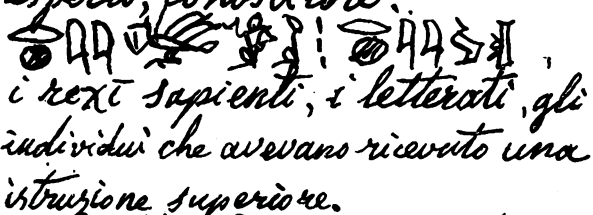 esperto, conoscitore.
i rexī sapienti, i letterati, gli
individui che avevano ricevuto una
istruzione superiore.